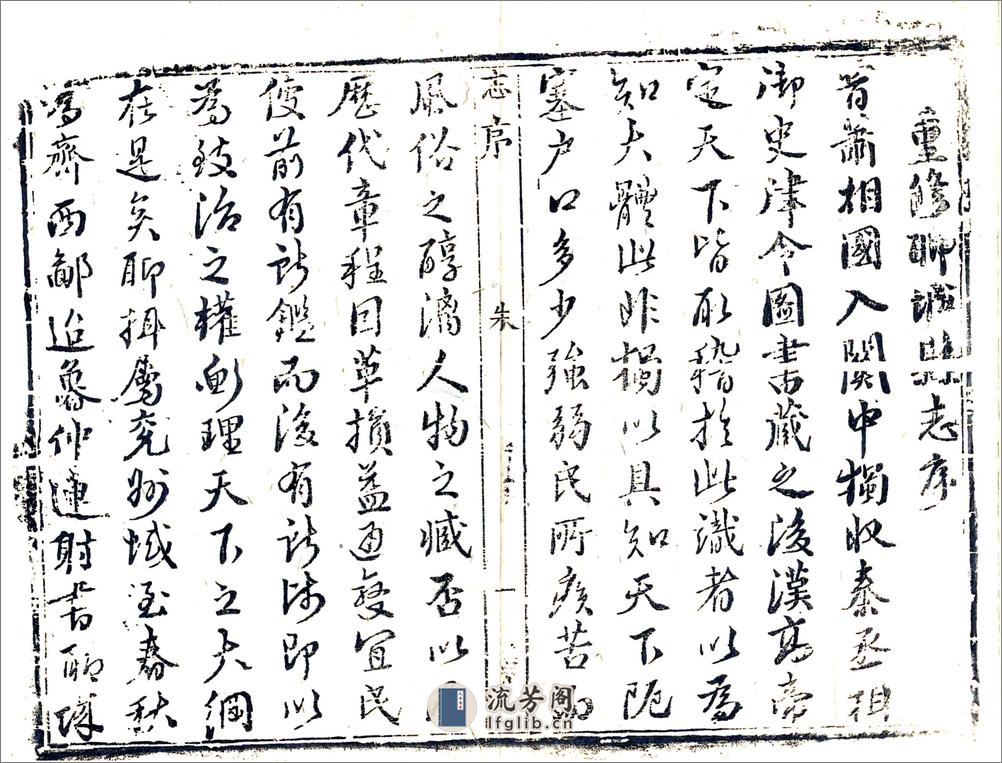 重修聊城縣志序
昔蕭相國入關中獨收秦丞相
御史律令圖書藏之後漢高帝
定天下皆取稽於此識者以為
知大體此非獨以具知天下阨
塞户口多少強弱民所疾苦
志序
朱
一
風俗之醇漓人物之臧否以
歷代章程因革損益通變宜民
使前有所鑑而後有所師即以
為致治之權衡理天下之大綱
在是矣聊攝屬兖州域至春秋
為齊西鄙迨魯仲連射書聊城
流芳阁
lfglib.cn